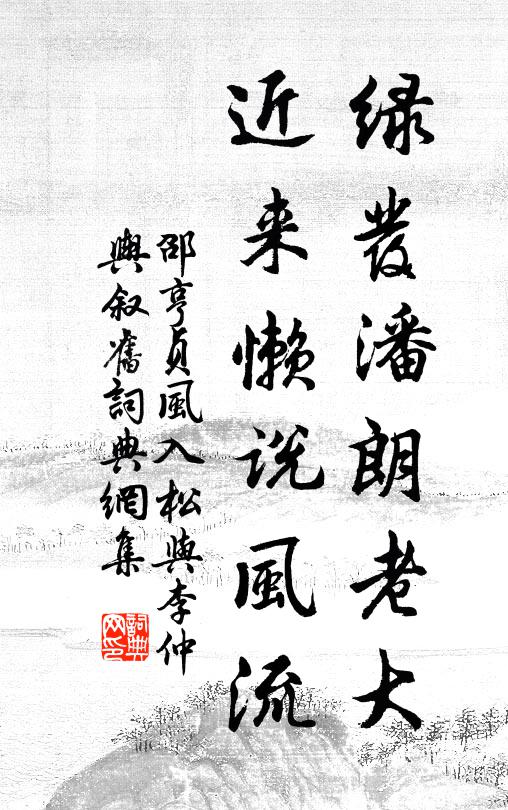 绿發潘朗老大
近来懒说風流
邵亨貞風入松與李仲
與叙舊詞典網集
詞典
网